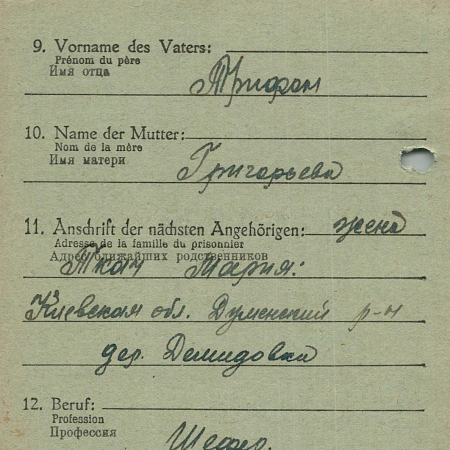 9. Vorname des Vaters:
Prénom du père
Имя отца
Трифон
10. Name der Mutter:
Nom de la mère
Имя матери
Григорьева
11. Anschrift der nächsten Angehörigen: жена
Adresse de la famille du prisonnier
Адрес ближайших родственников
Ткач Мария:
Киевская обл. Думенский р-н
дер. Демидовка
12. Beruf:
Profession
Профессия
Шофер.